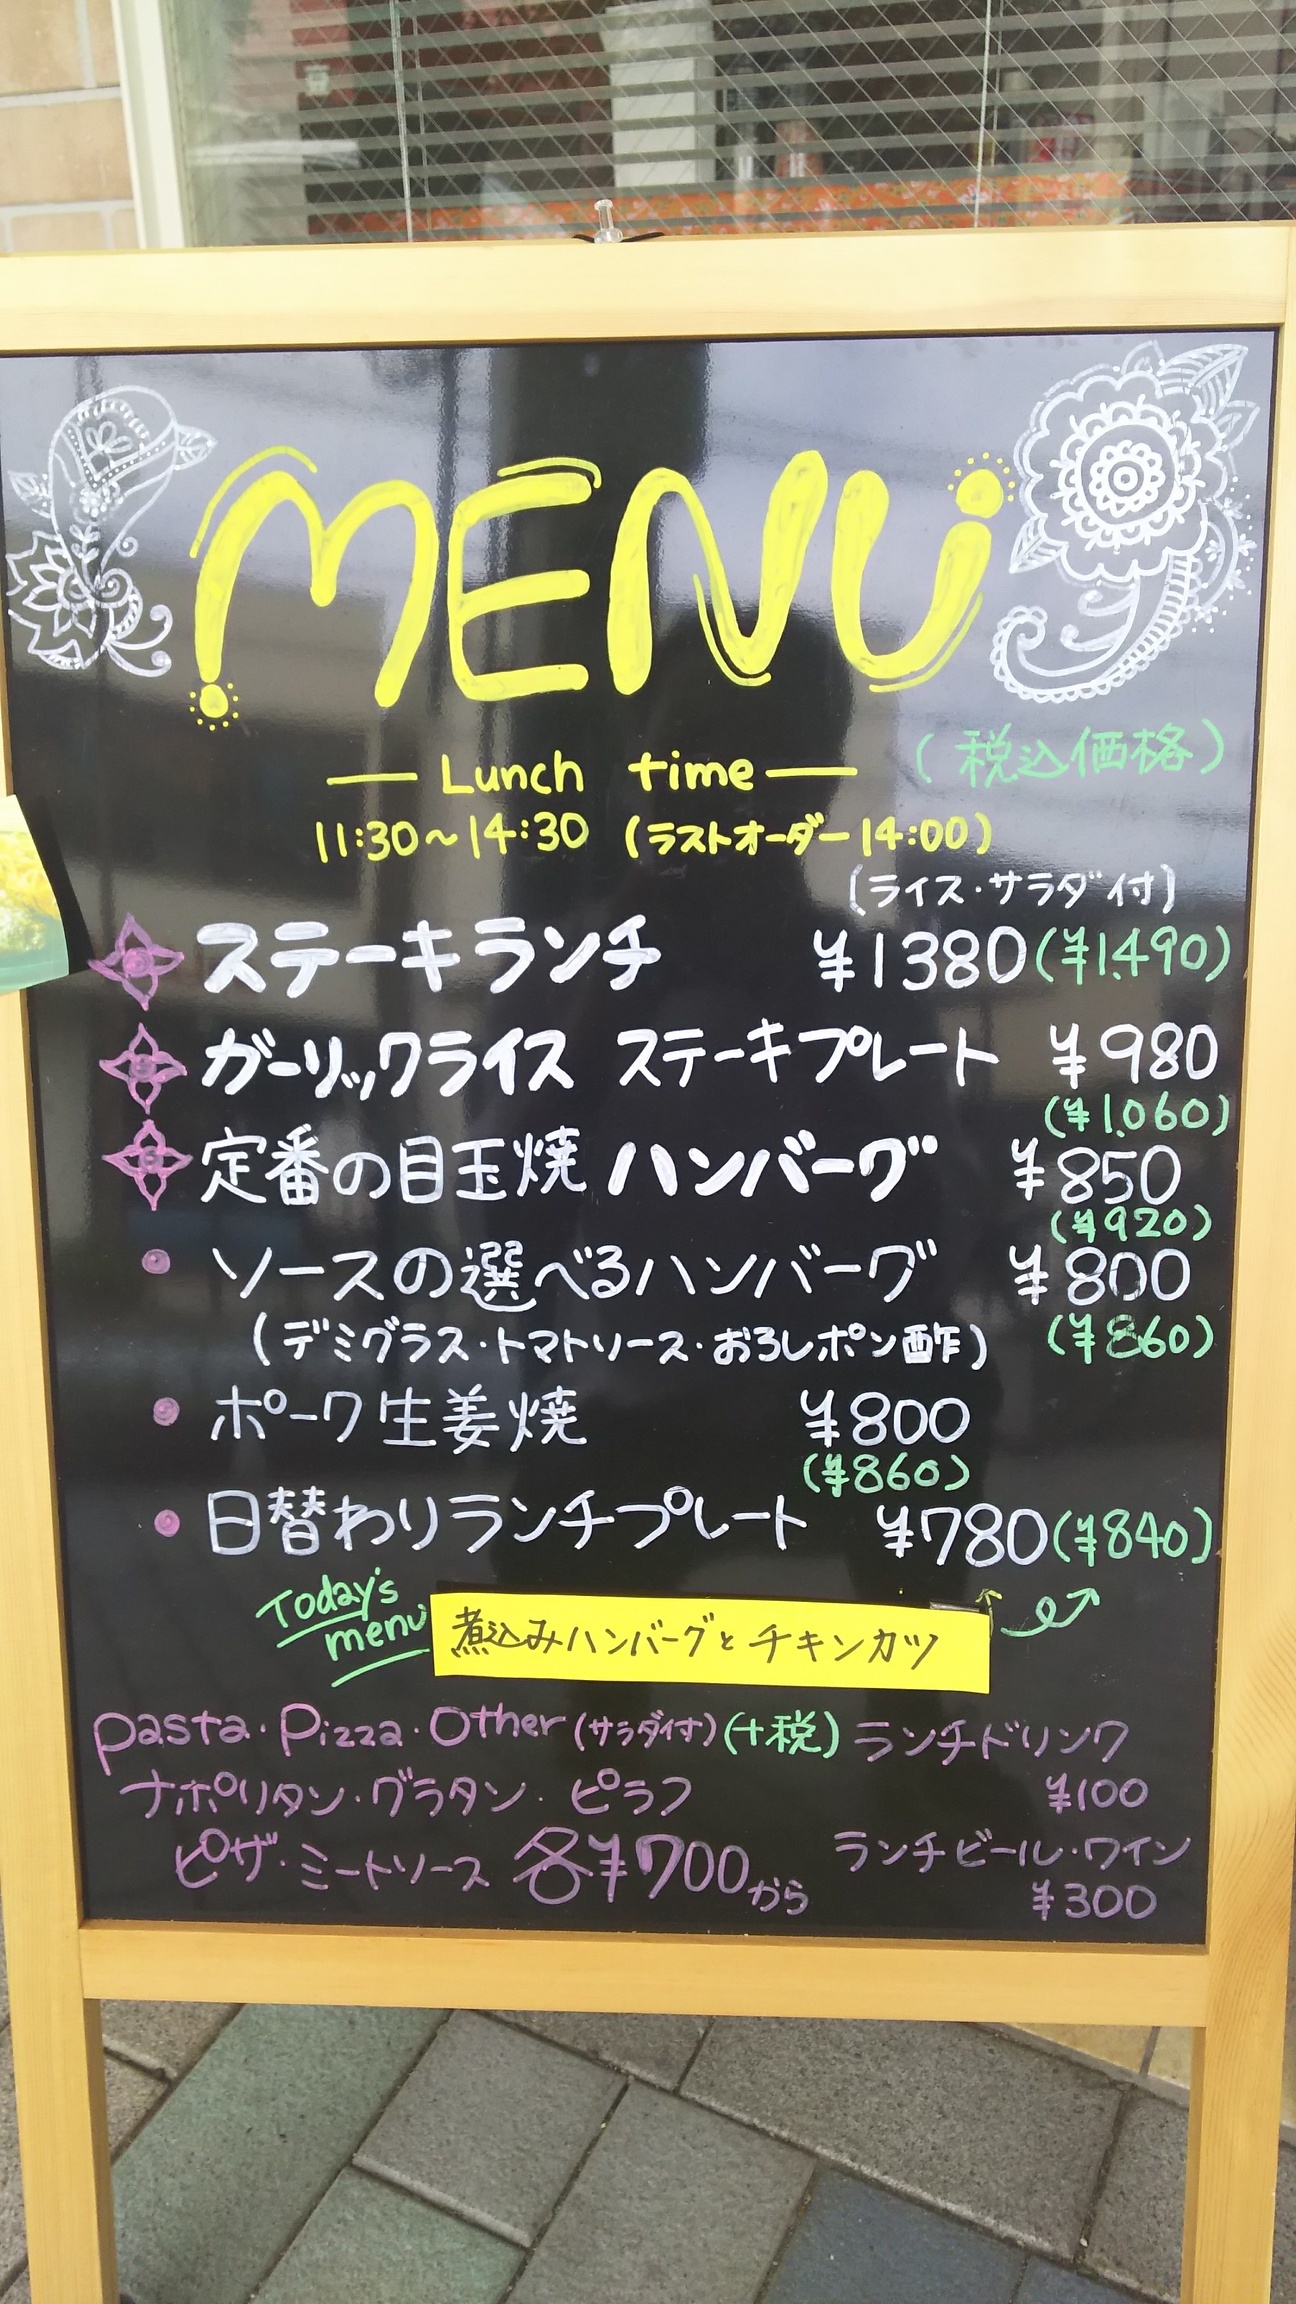 MENU
(税込価格)
Lunch time
11:30～14:30 (ラストオーダー14:00)
(ライス・サラダ付)
ステーキランチ ¥1380(¥1.490)
ガーリックライス ステーキプレート ¥980
(¥1.060)
定番の目玉焼ハンバーグ ¥850
(¥920)
ソースの選べるハンバーグ ¥800
(デミグラス・トマトソース・おろしポン酢) (¥860)
ポーク生姜焼 ¥800
(¥860)
日替わりランチプレート ¥780(¥840)
Today's
menu
煮込みハンバーグとチキンカツ
Pasta・Pizza・Other (サラダ付) (+税)
ナポリタン・グラタン・ピラフ
ピザ・ミートソース 各¥700から
ランチドリンク
¥100
ランチビール・ワイン
¥300